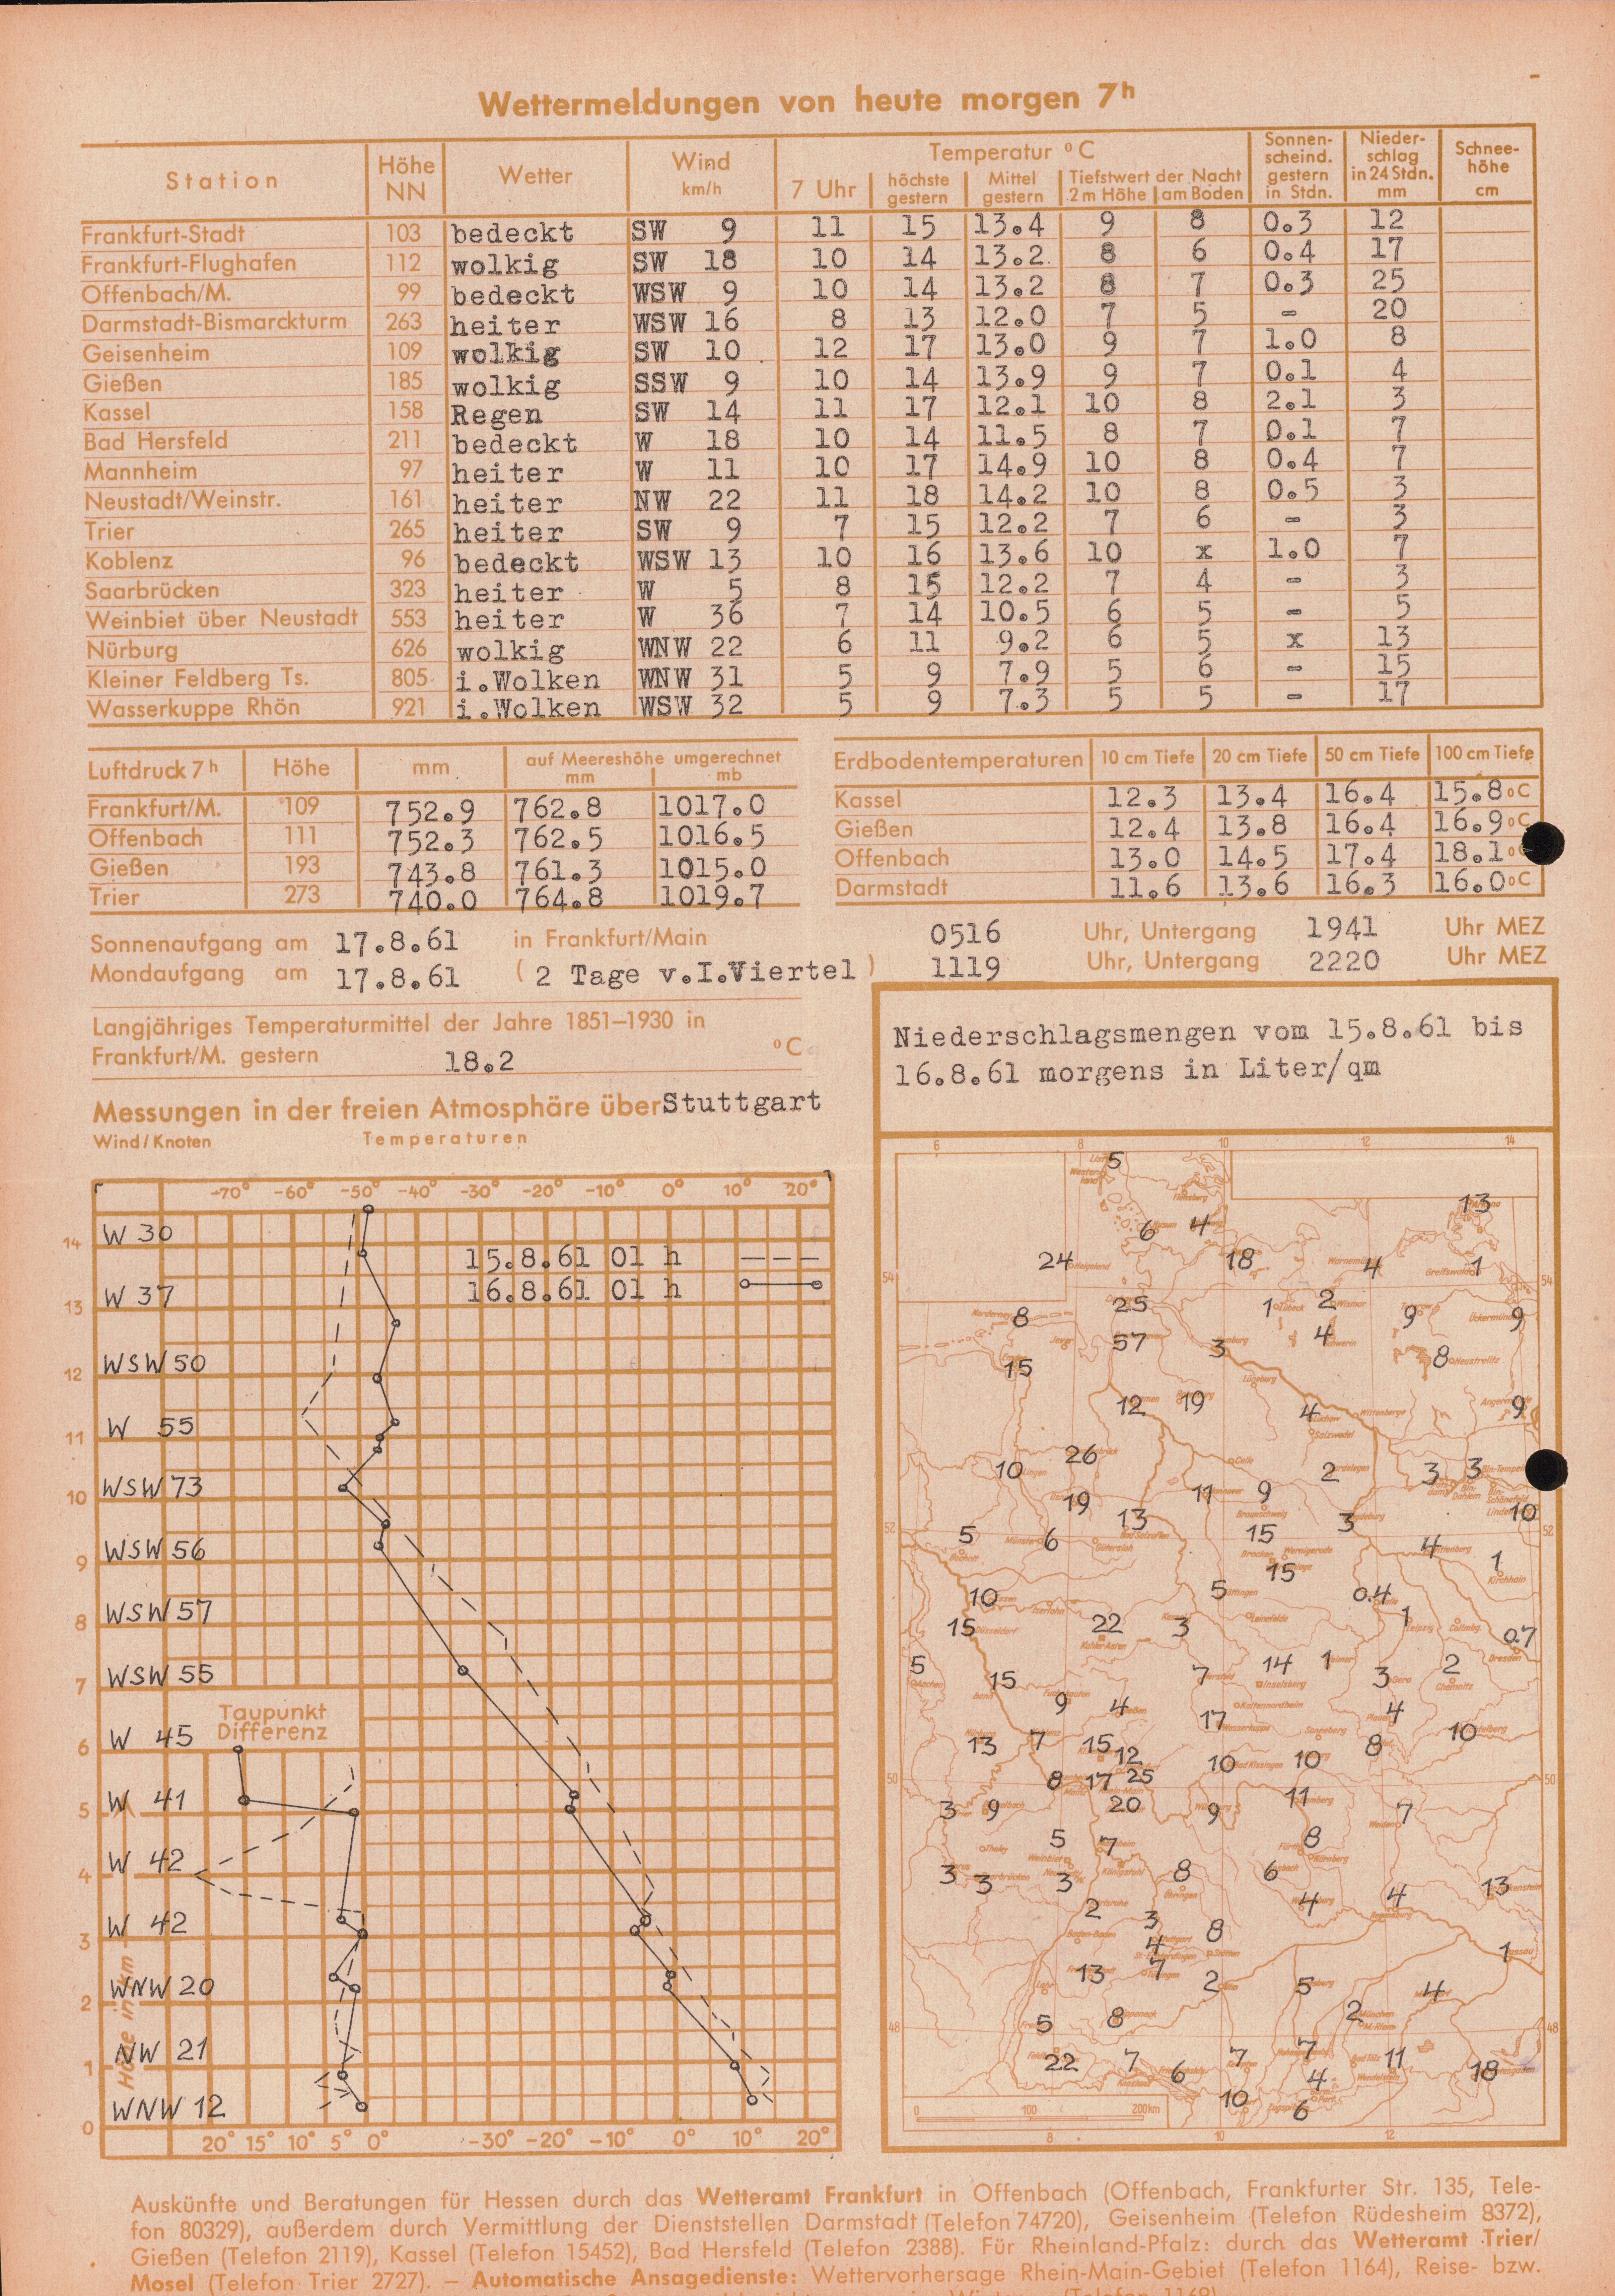 Wettermeldungen von heute morgen 7h
Station Höhe NN Wetter Wind km/h Temperatur °C Sonnenscheind. gestern in Stdn. Niederschlag in 24 Stdn. mm Schneehöhe cm
7 Uhr höchste gestern Mittel gestern Tiefstwert der Nacht 2 m Höhe am Boden
Frankfurt-Stadt 103 bedeckt SW 9 11 15 13.4 9 8 0.3 12
Frankfurt-Flughafen 112 wolkig SW 18 10 14 13.2 8 6 0.4 17
Offenbach/M. 99 bedeckt WSW 9 10 14 13.2 8 7 0.3 25
Darmstadt-Bismarckturm 263 heiter WSW 16 8 13 12.0 7 5 - 20
Geisenheim 109 wolkig SW 10 12 17 13.0 9 7 1.0 8
Gießen 185 wolkig SSW 9 10 14 13.9 9 7 0.1 4
Kassel 158 Regen SW 14 11 17 12.1 10 8 2.1 3
Bad Hersfeld 211 bedeckt W 18 10 14 11.5 8 7 0.1 7
Mannheim 97 heiter W 11 10 17 14.9 10 8 0.4 7
Neustadt/Weinstr. 161 heiter NW 22 11 18 14.2 10 8 0.5 3
Trier 265 heiter SW 9 7 15 12.2 7 6 - 3
Koblenz 96 bedeckt WSW 13 10 16 13.6 10 x 1.0 7
Saarbrücken 323 heiter W 5 8 15 12.2 7 4 - 3
Weinbiet über Neustadt 553 heiter W 36 7 14 10.5 6 5 - 5
Nürburg 626 wolkig WNW 22 6 11 9.2 6 5 x 13
Kleiner Feldberg Ts. 805 i.Wolken WNW 31 5 9 7.9 5 6 - 15
Wasserkuppe Rhön 921 i.Wolken WSW 32 5 9 7.3 5 5 - 17
Luftdruck 7h Höhe mm auf Meereshöhe umgerechnet mm mb
Frankfurt/M. 109 752.9 762.8 1017.0
Offenbach 111 752.3 762.5 1016.5
Gießen 193 743.8 761.3 1015.0
Trier 273 740.0 764.8 1019.7
Erdbodentemperaturen 10 cm Tiefe 20 cm Tiefe 50 cm Tiefe 100 cm Tiefe
Kassel 12.3 13.4 16.4 15.8 °C
Gießen 12.4 13.8 16.4 16.9 °C
Offenbach 13.0 14.5 17.4 18.1 °C
Darmstadt 11.6 13.6 16.3 16.0 °C
Sonnenaufgang am 17.8.61 in Frankfurt/Main 0516 Uhr, Untergang 1941 Uhr MEZ
Mondaufgang am 17.8.61 (2 Tage v.I.Viertel) 1119 Uhr, Untergang 2220 Uhr MEZ
Langjähriges Temperaturmittel der Jahre 1851–1930 in
Frankfurt/M. gestern 18.2 °C
Messungen in der freien Atmosphäre über Stuttgart
Wind/Knoten Temperaturen
-70° -60° -50° -40° -30° -20° -10° 0° 10° 20°
14 W 30
15.8.61 01 h
16.8.61 01 h
13 W 37
12 WSW 50
11 W 55
10 WSW 73
9 WSW 56
8 WSW 57
7 WSW 55
Taupunkt Differenz
6 W 45
5 W 41
4 W 42
3 W 42
2 WNW 20
1 NW 21
0 WNW 12
Höhe in km
20° 15° 10° 5° 0° -30° -20° -10° 0° 10° 20°
Niederschlagsmengen vom 15.8.61 bis
16.8.61 morgens in Liter/qm
6 8 10 12 14
5
13
6 4
24 18 4 1
54 54
8 25 1 2 9 9
57 3 4
15 8
12 19 4 9
26
10 2 3 3
19 11 9
13 3 10
52 52
5 6 15 4
15 1
10 5 0.4
15 22 3 1 0.7
5 15 7 14 1 3 2
9 4 17 4
13 7 15 12 8 10
10 10
50 50
8 17 25
3 9 20 9 11 7
5 7 8
3 3 3 8 6 13
2 4 4
3 8
4 1
13 7 2 5 4
2
48 48
5 8
22 7 6 7 7 11 18
4
10 6
0 100 200 km
8 10 12
Auskünfte und Beratungen für Hessen durch das Wetteramt Frankfurt in Offenbach (Offenbach, Frankfurter Str. 135, Tele-
fon 80329), außerdem durch Vermittlung der Dienststellen Darmstadt (Telefon 74720), Geisenheim (Telefon Rüdesheim 8372),
Gießen (Telefon 2119), Kassel (Telefon 15452), Bad Hersfeld (Telefon 2388). Für Rheinland-Pfalz: durch das Wetteramt Trier/
Mosel (Telefon Trier 2727). — Automatische Ansagedienste: Wettervorhersage Rhein-Main-Gebiet (Telefon 1164), Reise- bzw.